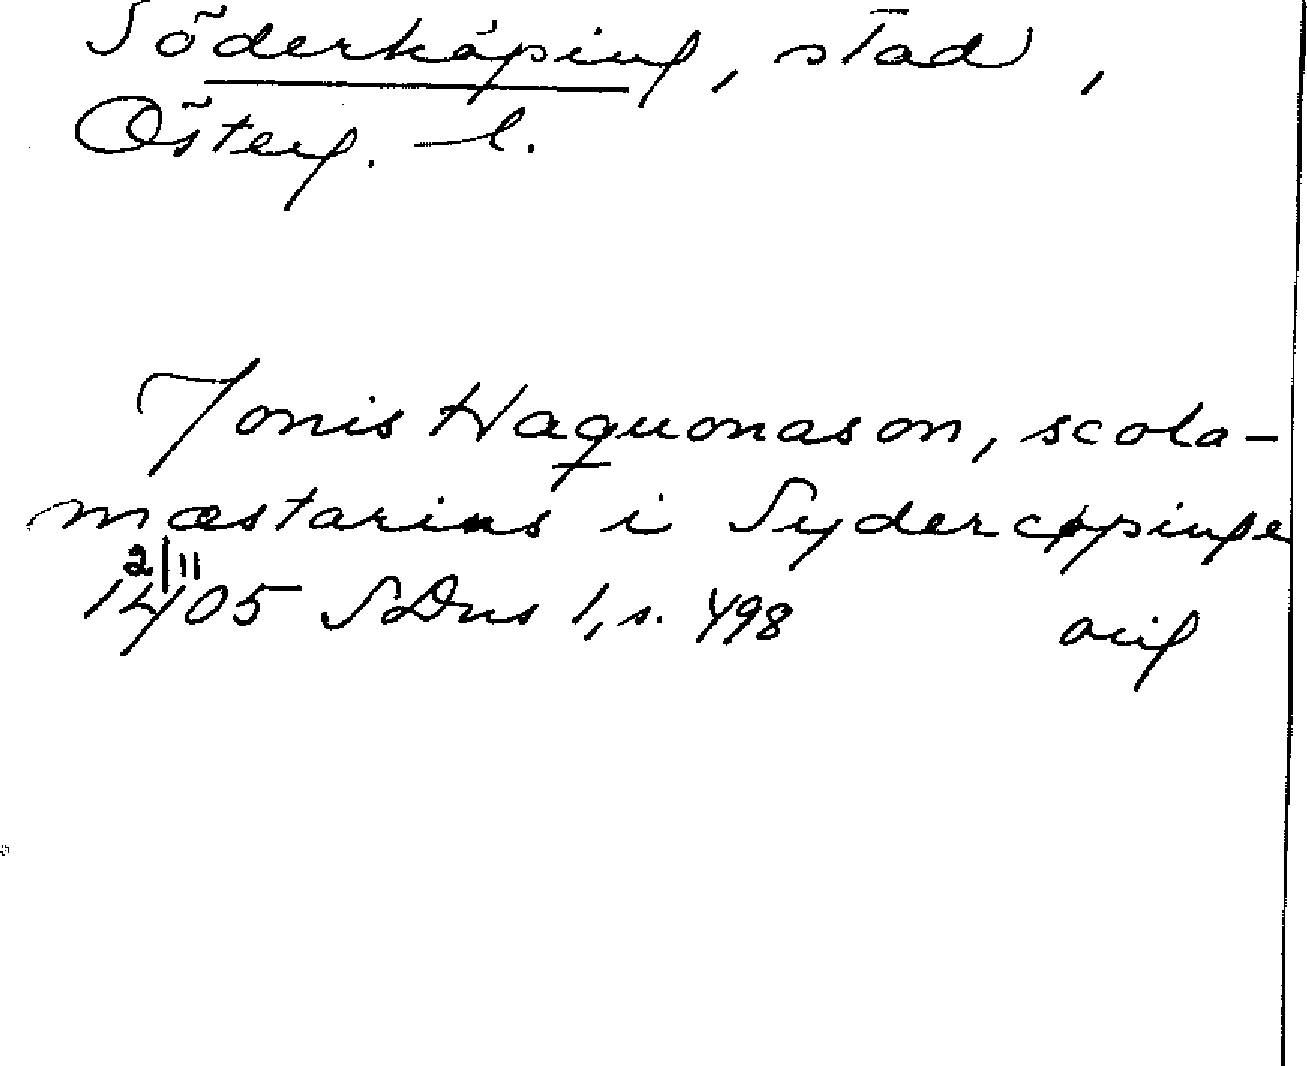 Söderköping, stad,
Österg. l.
Jonis Haquonason, scola-
mæstarius i Sydercøpinge
2/11
1405 SDns 1, s. 498 orig